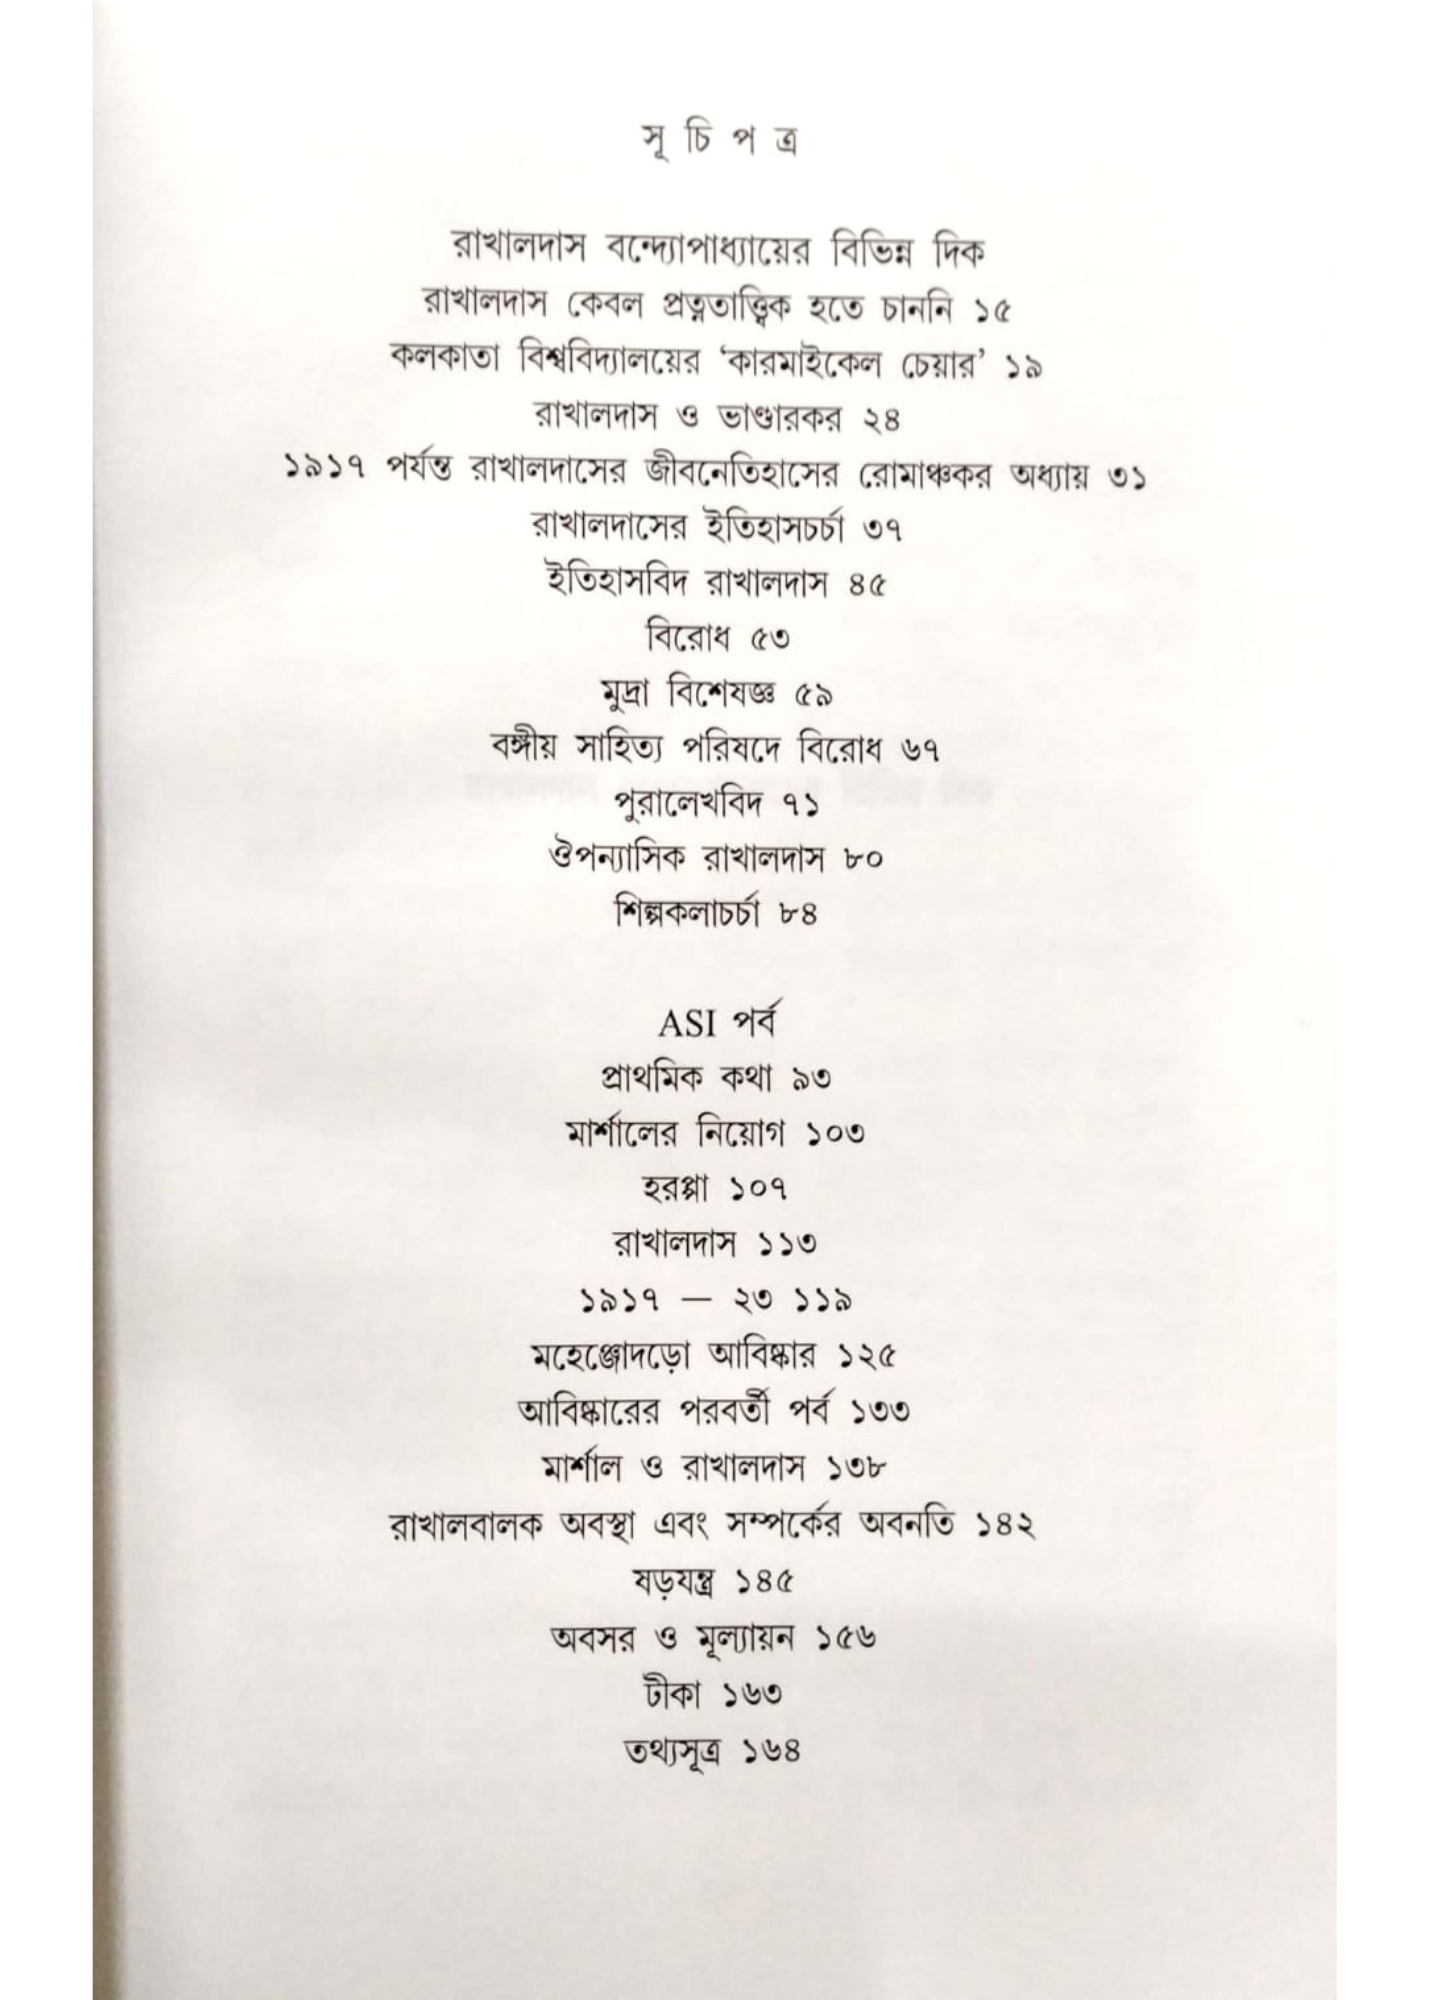 সূ চি প ত্র
রাখালদাস বন্দ্যোপাধ্যায়ের বিভিন্ন দিক
রাখালদাস কেবল প্রত্নতাত্ত্বিক হতে চাননি ১৫
কলকাতা বিশ্ববিদ্যালয়ের ‘কারমাইকেল চেয়ার’ ১৯
রাখালদাস ও ভাণ্ডারকর ২৪
১৯১৭ পর্যন্ত রাখালদাসের জীবনেতিহাসের রোমাঞ্চকর অধ্যায় ৩১
রাখালদাসের ইতিহাসচর্চা ৩৭
ইতিহাসবিদ রাখালদাস ৪৫
বিরোধ ৫৩
মুদ্রা বিশেষজ্ঞ ৫৯
বঙ্গীয় সাহিত্য পরিষদে বিরোধ ৬৭
পুরালেখবিদ ৭১
ঔপন্যাসিক রাখালদাস ৮০
শিল্পকলাচর্চা ৮৪
ASI পর্ব
প্রাথমিক কথা ৯৩
মার্শালের নিয়োগ ১০৩
হরপ্পা ১০৭
রাখালদাস ১১৩
১৯১৭ — ২৩ ১১৯
মহেঞ্জোদড়ো আবিষ্কার ১২৫
আবিষ্কারের পরবর্তী পর্ব ১৩৩
মার্শাল ও রাখালদাস ১৩৮
রাখালবালক অবস্থা এবং সম্পর্কের অবনতি ১৪২
ষড়যন্ত্র ১৪৫
অবসর ও মূল্যায়ন ১৫৬
টীকা ১৬৩
তথ্যসূত্র ১৬৪